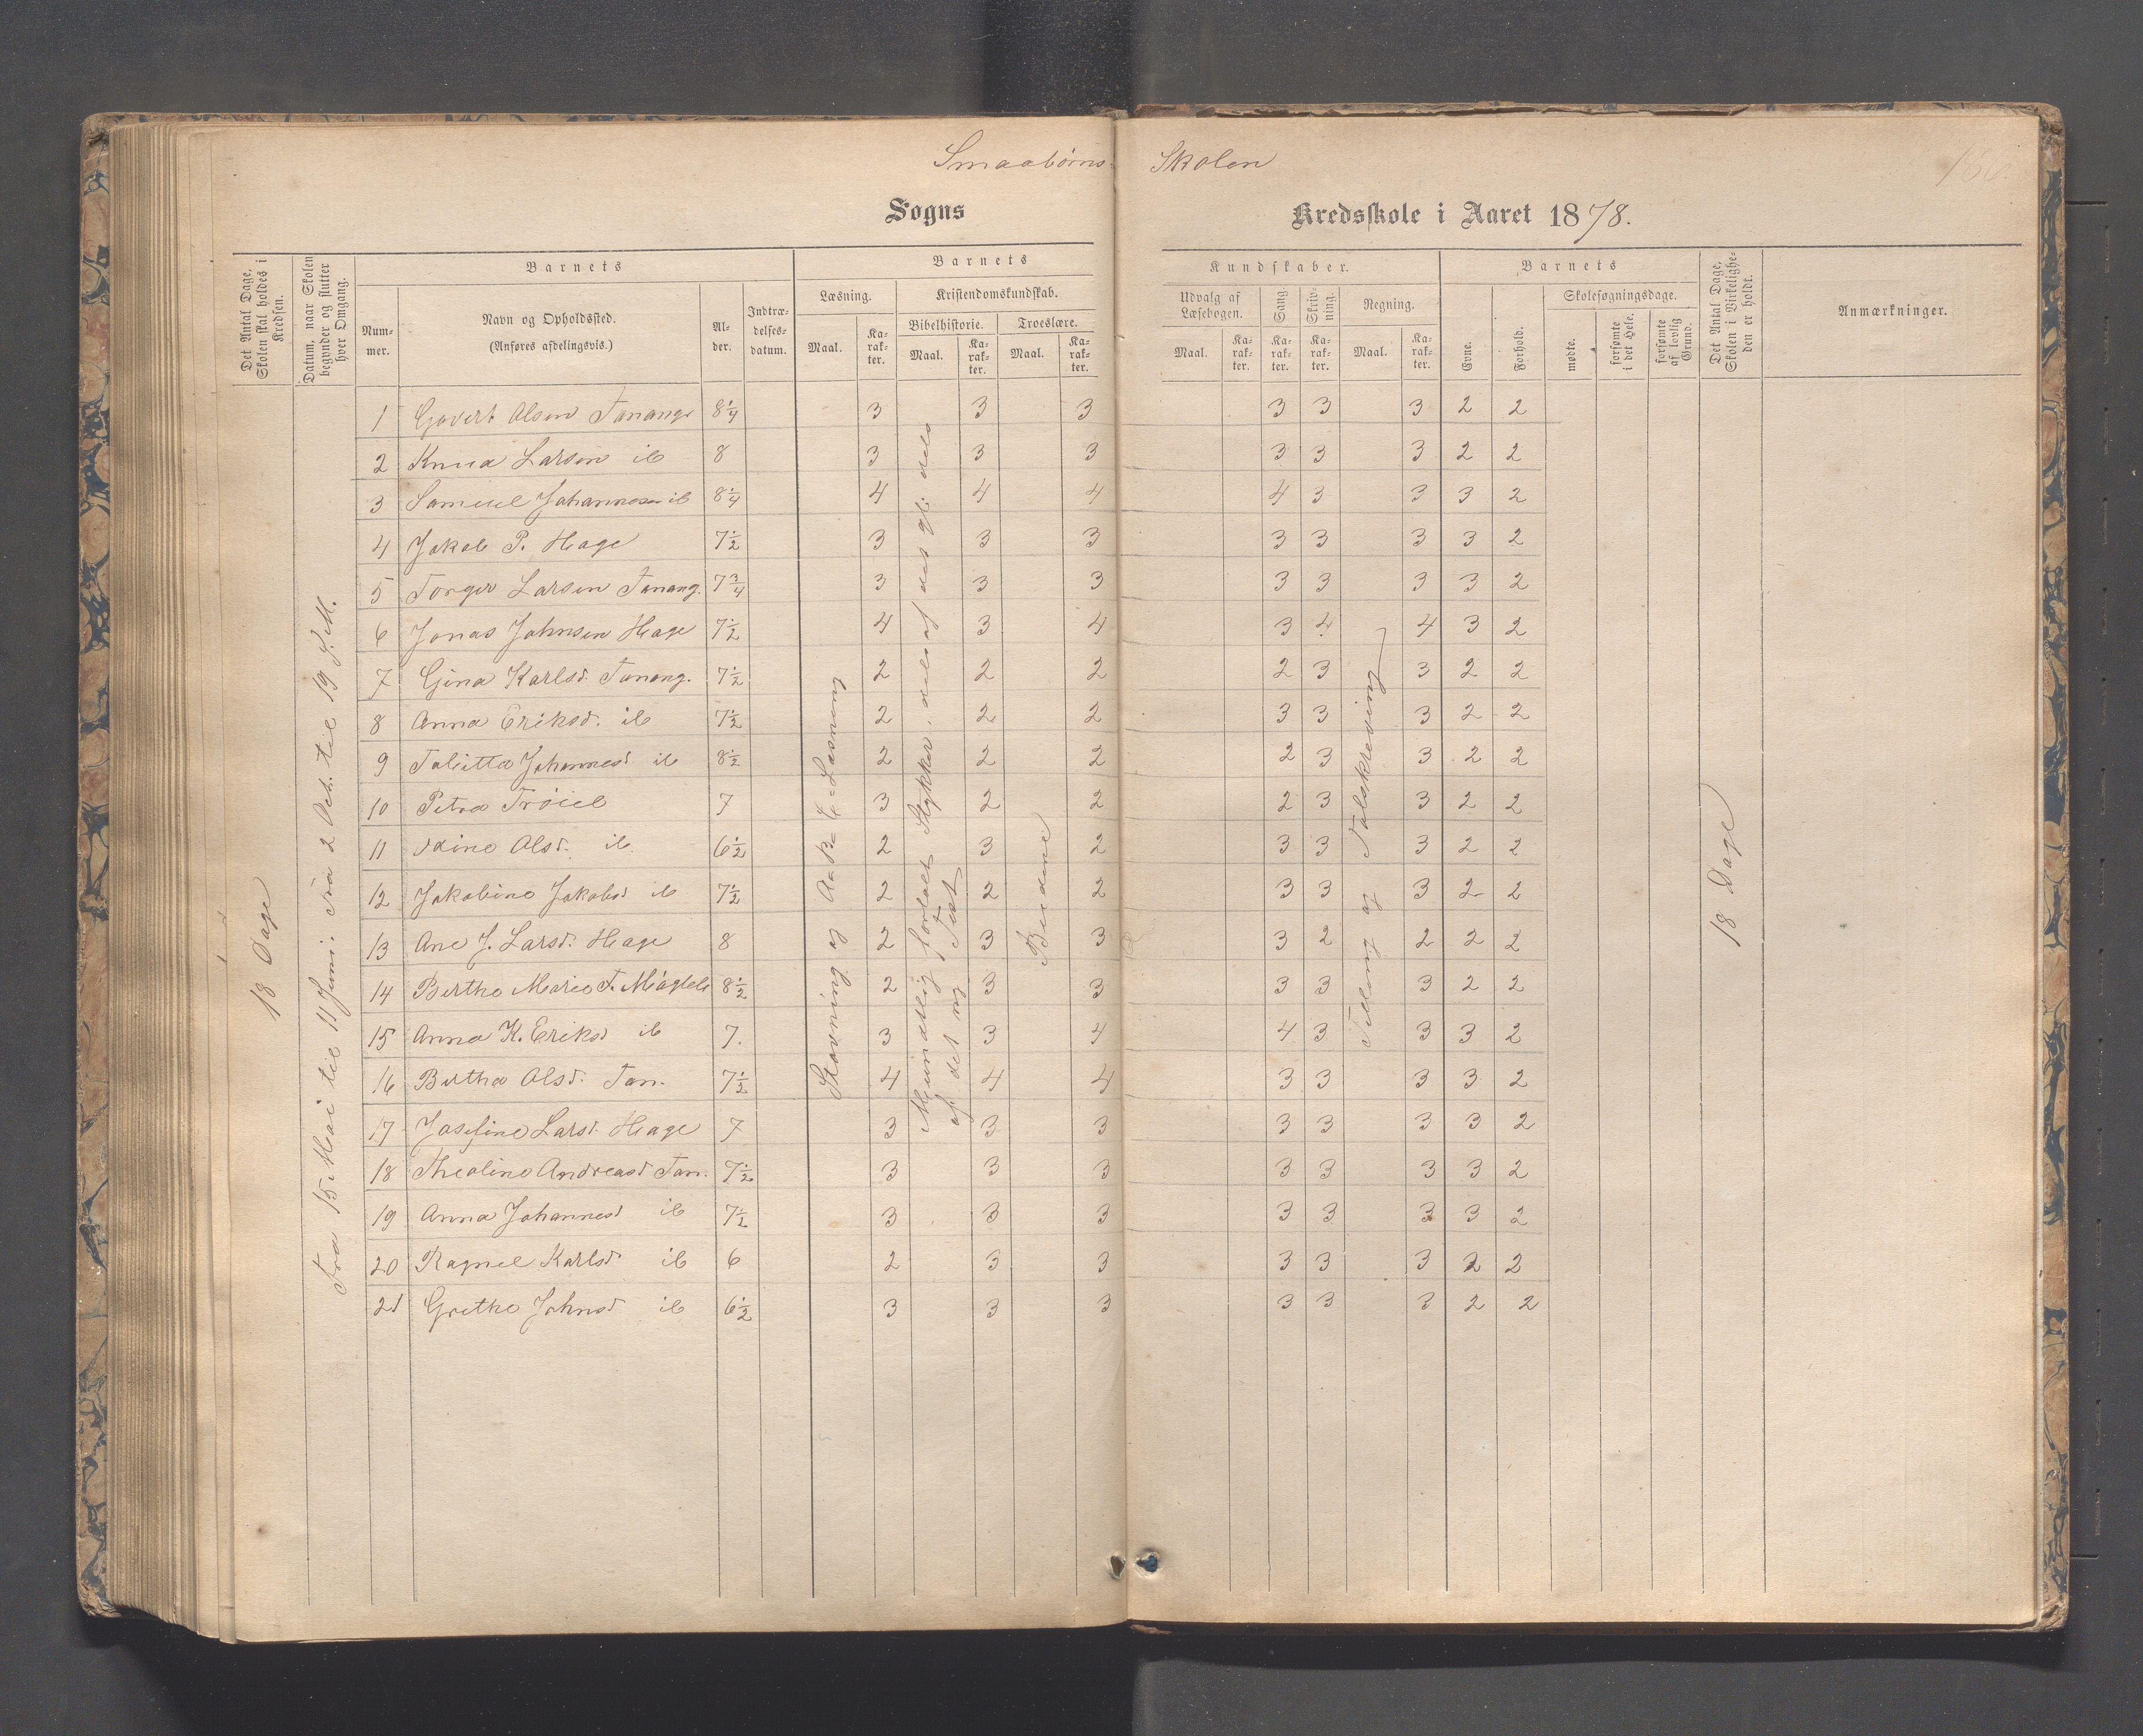 Smaabørns-Skolen
Sogns Kredsskole i Aaret 1878.
Det Antal Dage, Skolen skal holdes i Kredsen.
Datum, naar Skolen begynder og slutter hver Omgang.
Barnets
Nummer.
Navn og Opholdssted.
(Anføres afdelingsvis.)
Alder.
Indtrædelsesdatum.
Barnets
Læsning.
Maal.
Karakter.
Kristendomskundskab.
Bibelhistorie.
Maal.
Karakter.
Troeslære.
Maal.
Karakter.
Kundskaber.
Udvalg af Læsebogen.
Maal.
Karakter.
Sang
Karakter.
Skrivning.
Karakter.
Regning.
Maal.
Karakter.
Barnets
Evne.
Forhold.
Skolesøgningsdage.
mødte.
forsømte i det Hele.
forsømte af lovlig Grund.
Det Antal Dage, Skolen i Virkeligheden er holdt.
Anmærkninger.
18 Dage
Fra 15 Mai til 11 Juni. Fra 2 Oct. til 19 s. M.
Stavning og A-B-C-Læsning
Mundtlig fortalt Stykker, dels af det gl. dels af det ny Test.
Børdene
Tælling og Talskrivning
18 Dage
1 Govert Olsen Tanange 8 1/4 3 3 3 3 3 3 2 2
2 Knud Larsen ib 8 3 3 3 3 3 3 2 2
3 Samuel Johannesen ib 8 1/4 4 4 4 4 3 3 3 2
4 Jakob P. Hage 7 1/2 3 3 3 3 3 3 3 2
5 Torger Larsen Tanang. 7 3/4 3 3 3 3 3 3 3 2
6 Jonas Johnsen Hage 7 1/2 4 3 4 3 4 4 3 2
7 Gina Karlsd. Tanang. 7 1/2 2 2 2 2 3 3 2 2
8 Anna Eriksd. ib 7 1/2 2 2 2 3 3 3 2 2
9 Talitta Johannesd ib 8 1/2 2 2 2 2 3 3 2 2
10 Petra Trøiel 7 3 2 2 2 3 3 2 2
11 Olsd. ib. 6 1/2 2 3 2 3 3 3 2 2
12 Jakobine Jakobsd ib 7 1/2 2 2 2 3 3 3 2 2
13 Ane J. Larsd. Hage 8 2 3 3 3 2 2 2 2
14 Berthe Marie T. 8 1/2 2 3 3 3 3 3 2 2
15 Anna K. Eriksd ib 7. 3 3 4 4 3 3 3 2
16 Bertha Olsd. Tan. 7 1/2 4 4 4 3 3 3 3 2
17 Josefine Larsd. Hage 7 3 3 3 3 3 3 3 2
18 Theoline Andreasd Tan. 7 1/2 3 3 3 3 3 3 3 2
19 Anna Johannesd ib 7 1/2 3 3 3 3 3 3 3 2
20 Ragnel Karlsd ib 6 2 3 3 3 3 3 2 2
21 Grethe Johnsd ib 6 1/2 3 3 3 3 3 3 2 2